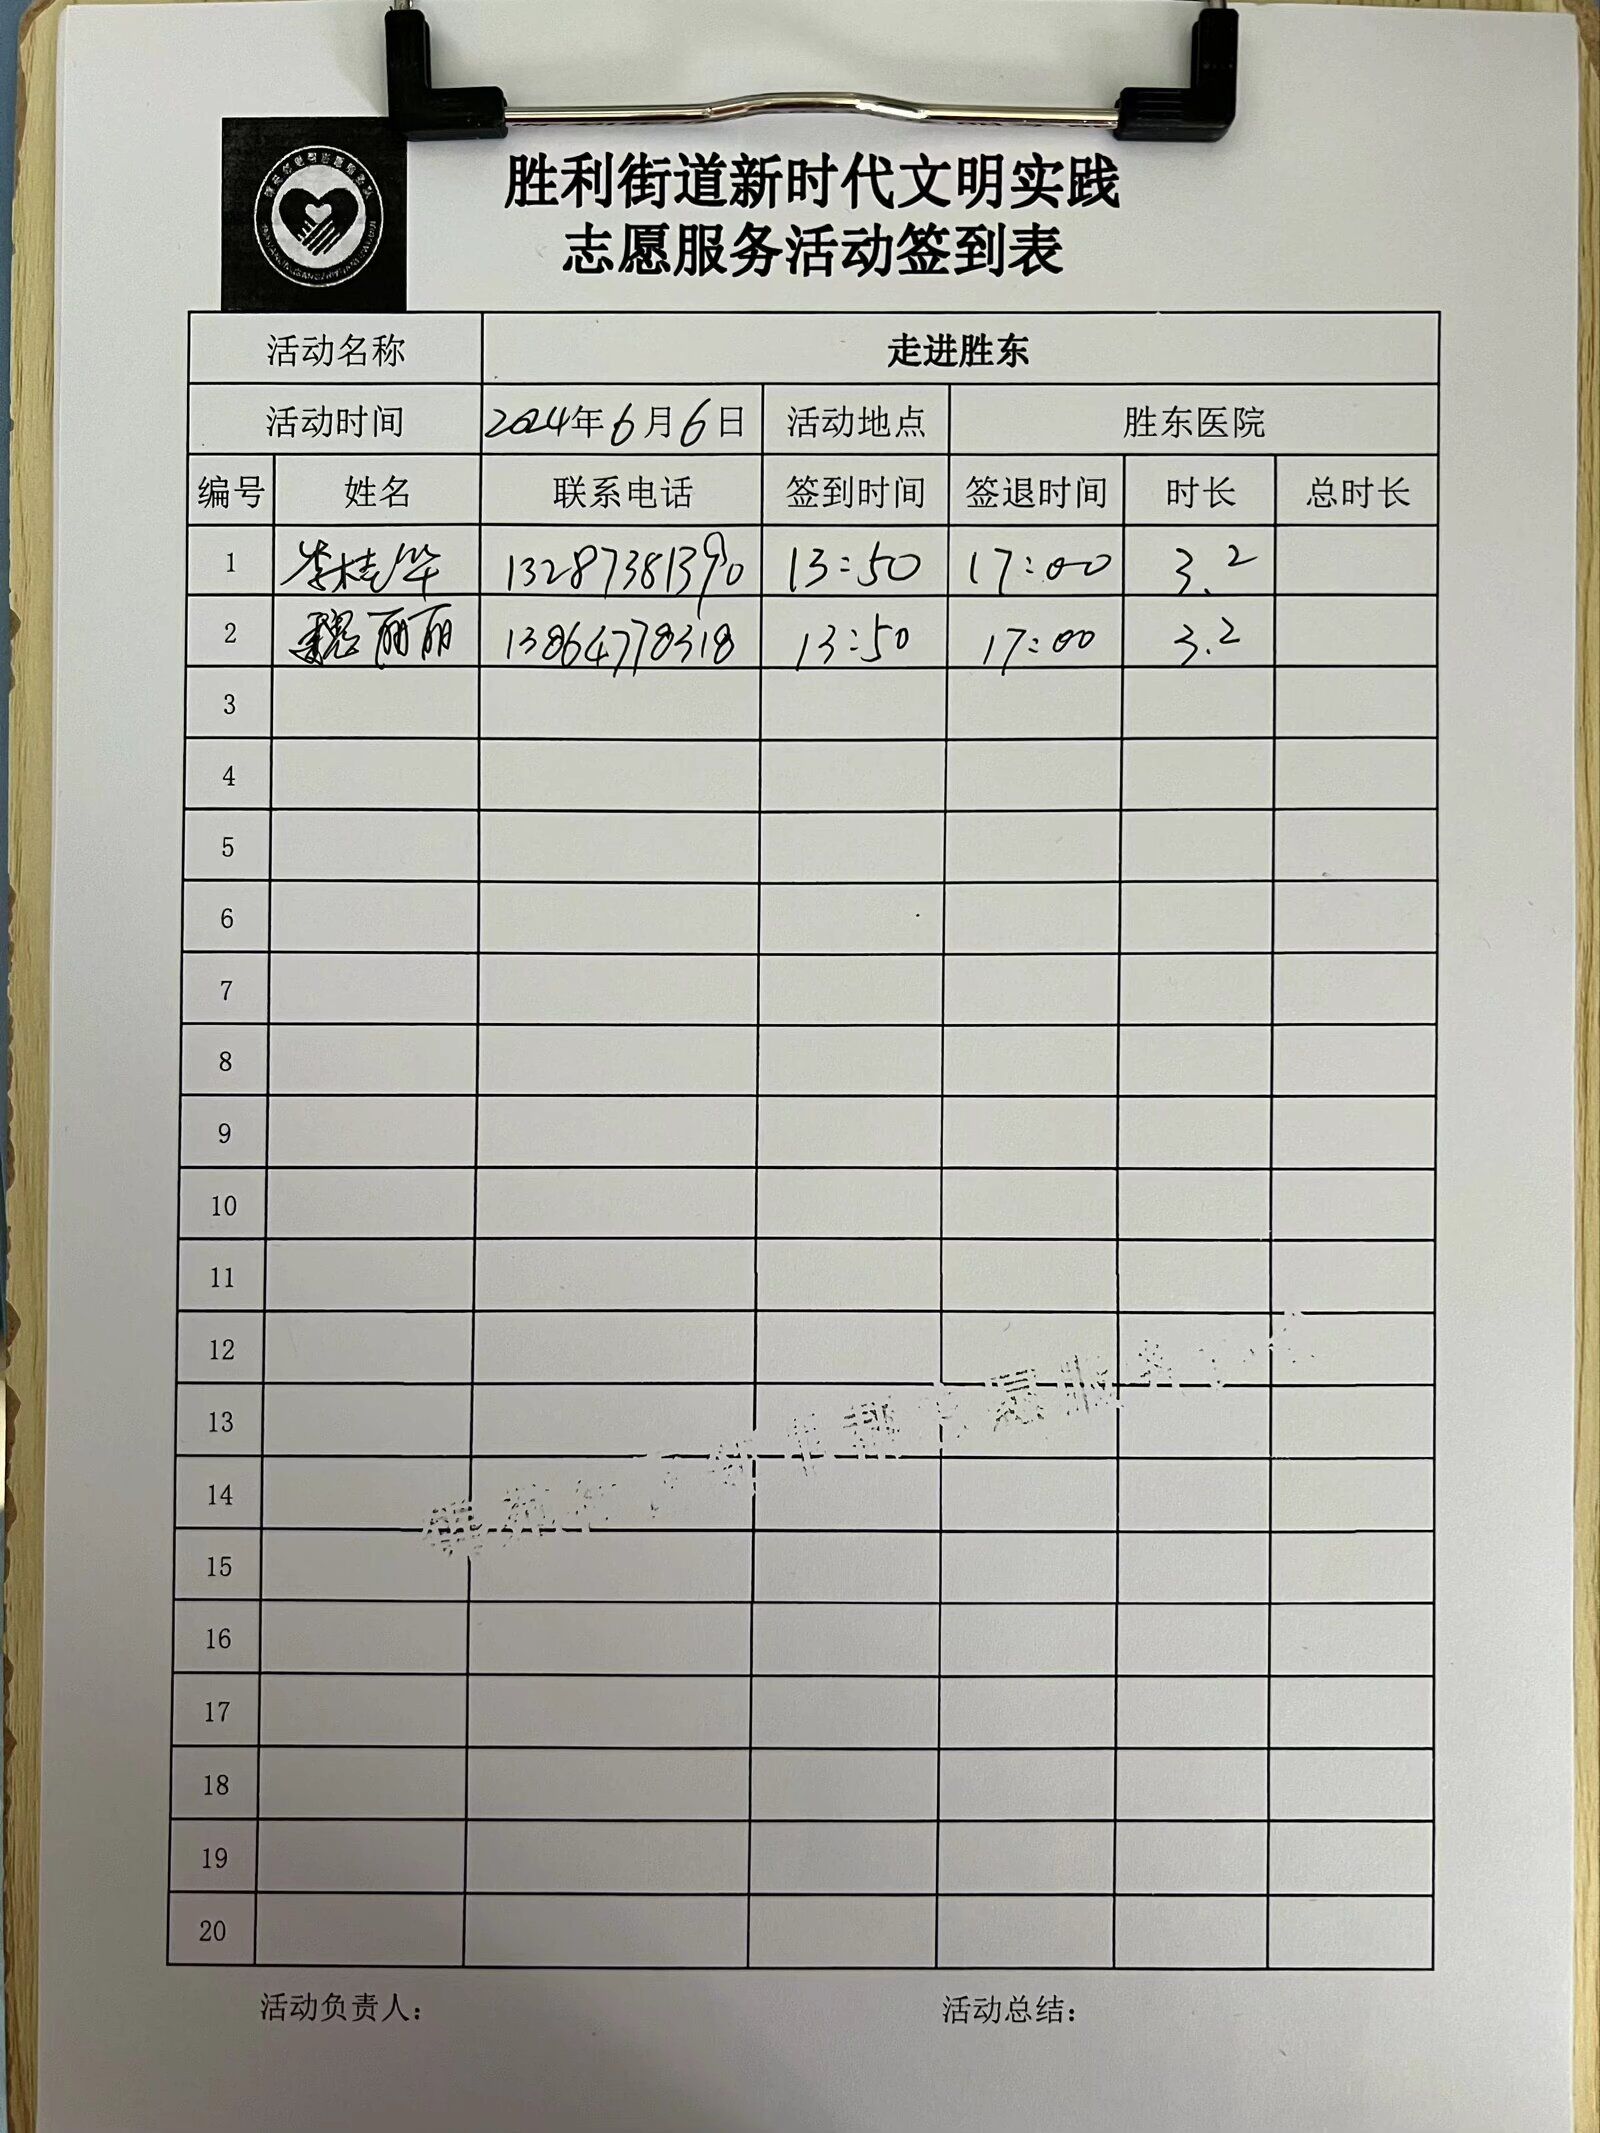 胜利街道新时代文明实践
志愿服务活动签到表
活动名称 走进胜东
活动时间 2024年6月6日 活动地点 胜东医院
编号 姓名 联系电话 签到时间 签退时间 时长 总时长
1 李桂华 13287381390 13:50 17:00 3.2
2 魏丽丽 13864778318 13:50 17:00 3.2
3
4
5
6
7
8
9
10
11
12
13
14
15
16
17
18
19
20
活动负责人: 活动总结: